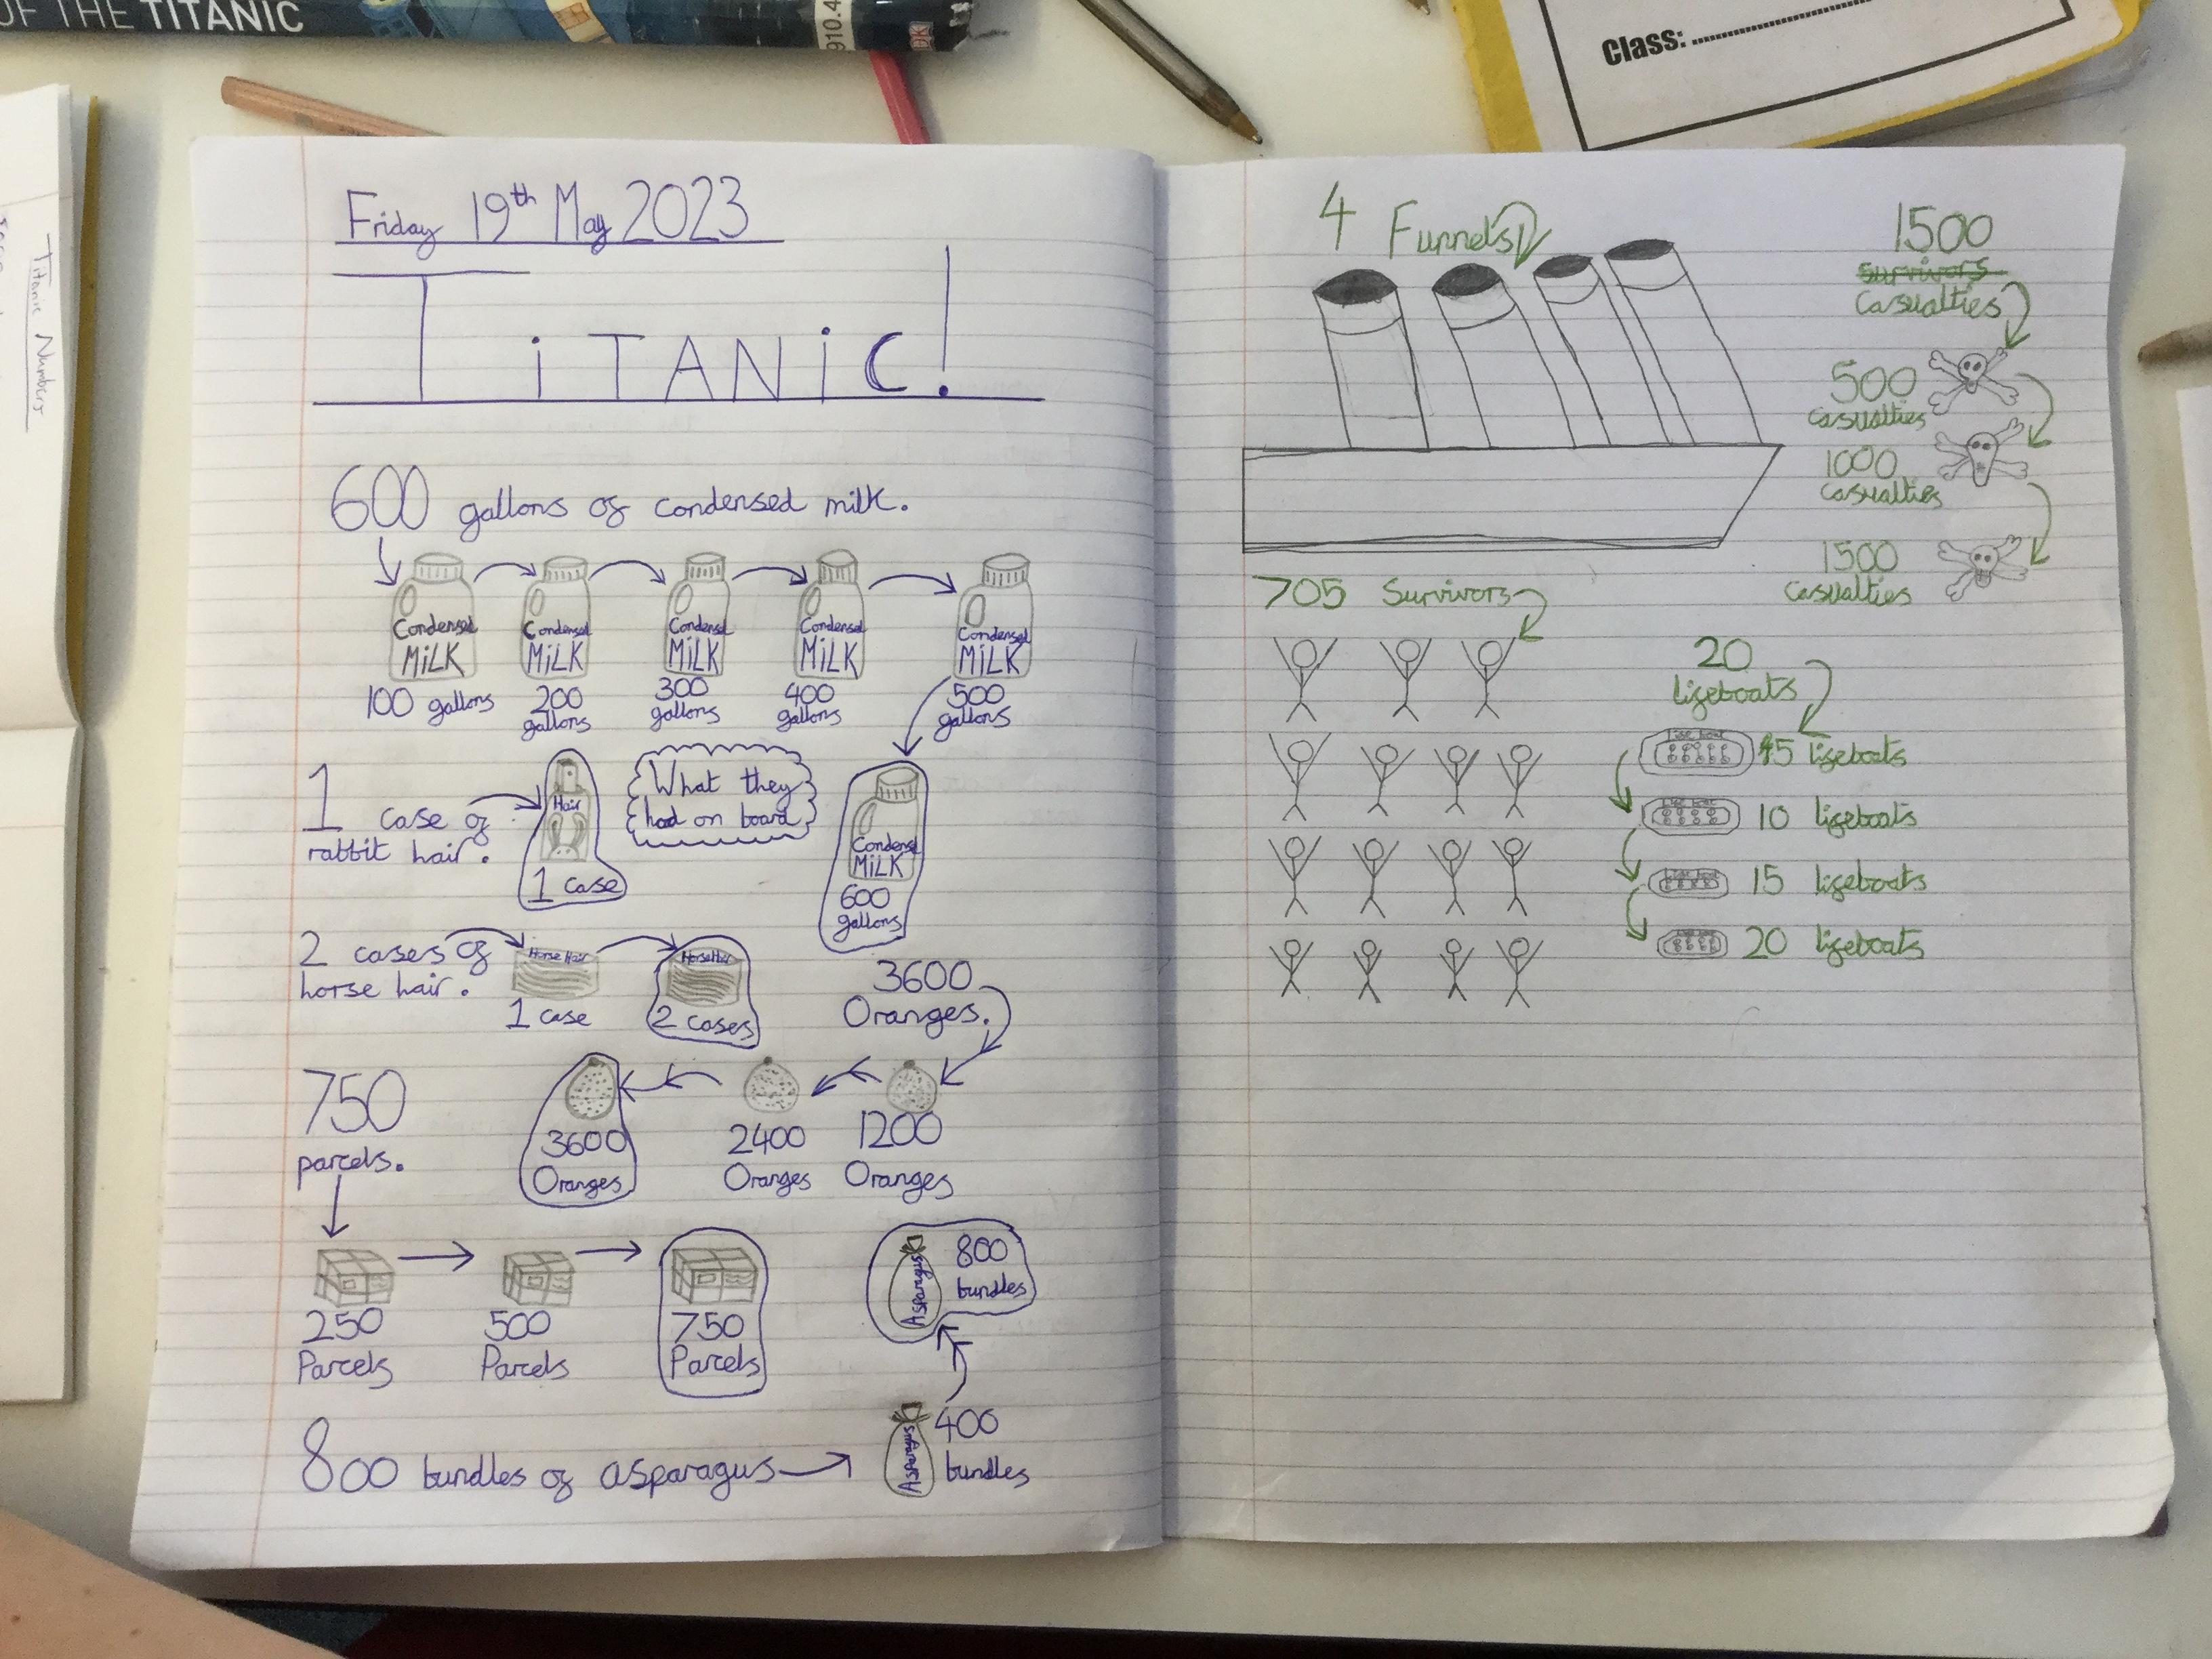 OF THE TITANIC
910.4
DK
Class:
Titanic Numbers
Friday 19th May 2023
TiTANiC!
600 gallons of condensed milk.
Condensed MiLK
100 gallons
Condensed MiLK
200 gallons
Condensed MiLK
300 gallons
Condensed MiLK
400 gallons
Condensed MiLK
500 gallons
Condensed MiLK
600 gallons
1 case of
rabbit hair.
Hair
1 case
What they
had on board
2 cases of
horse hair.
Horse Hair
1 case
Horse Hair
2 cases
3600
Oranges.
1200
Oranges
2400
Oranges
3600
Oranges
750
parcels.
250
Parcels
500
Parcels
750
Parcels
800 bundles of asparagus
Asparagus
400
bundles
Asparagus
800
bundles
4 Funnels
1500
survivors
Casualties
500
casualties
1000
casualties
1500
casualties
705 Survivors
20
lifeboats
5 lifeboats
10 lifeboats
15 lifeboats
20 lifeboats